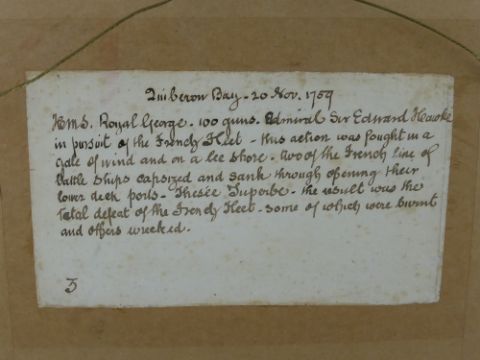 Quiberon Bay - 20 Nov. 1759
H.M.S. Royal George. 100 guns. Admiral Sir Edward Hawke
in pursuit of the French Fleet - this action was fought in a
gale of wind and on a lee shore. two of the French line of
battle ships capsized and sank through opening their
lower deck ports - Thesée Superbe - the result was the
total defeat of the French Fleet - some of which were burnt
and others wrecked.